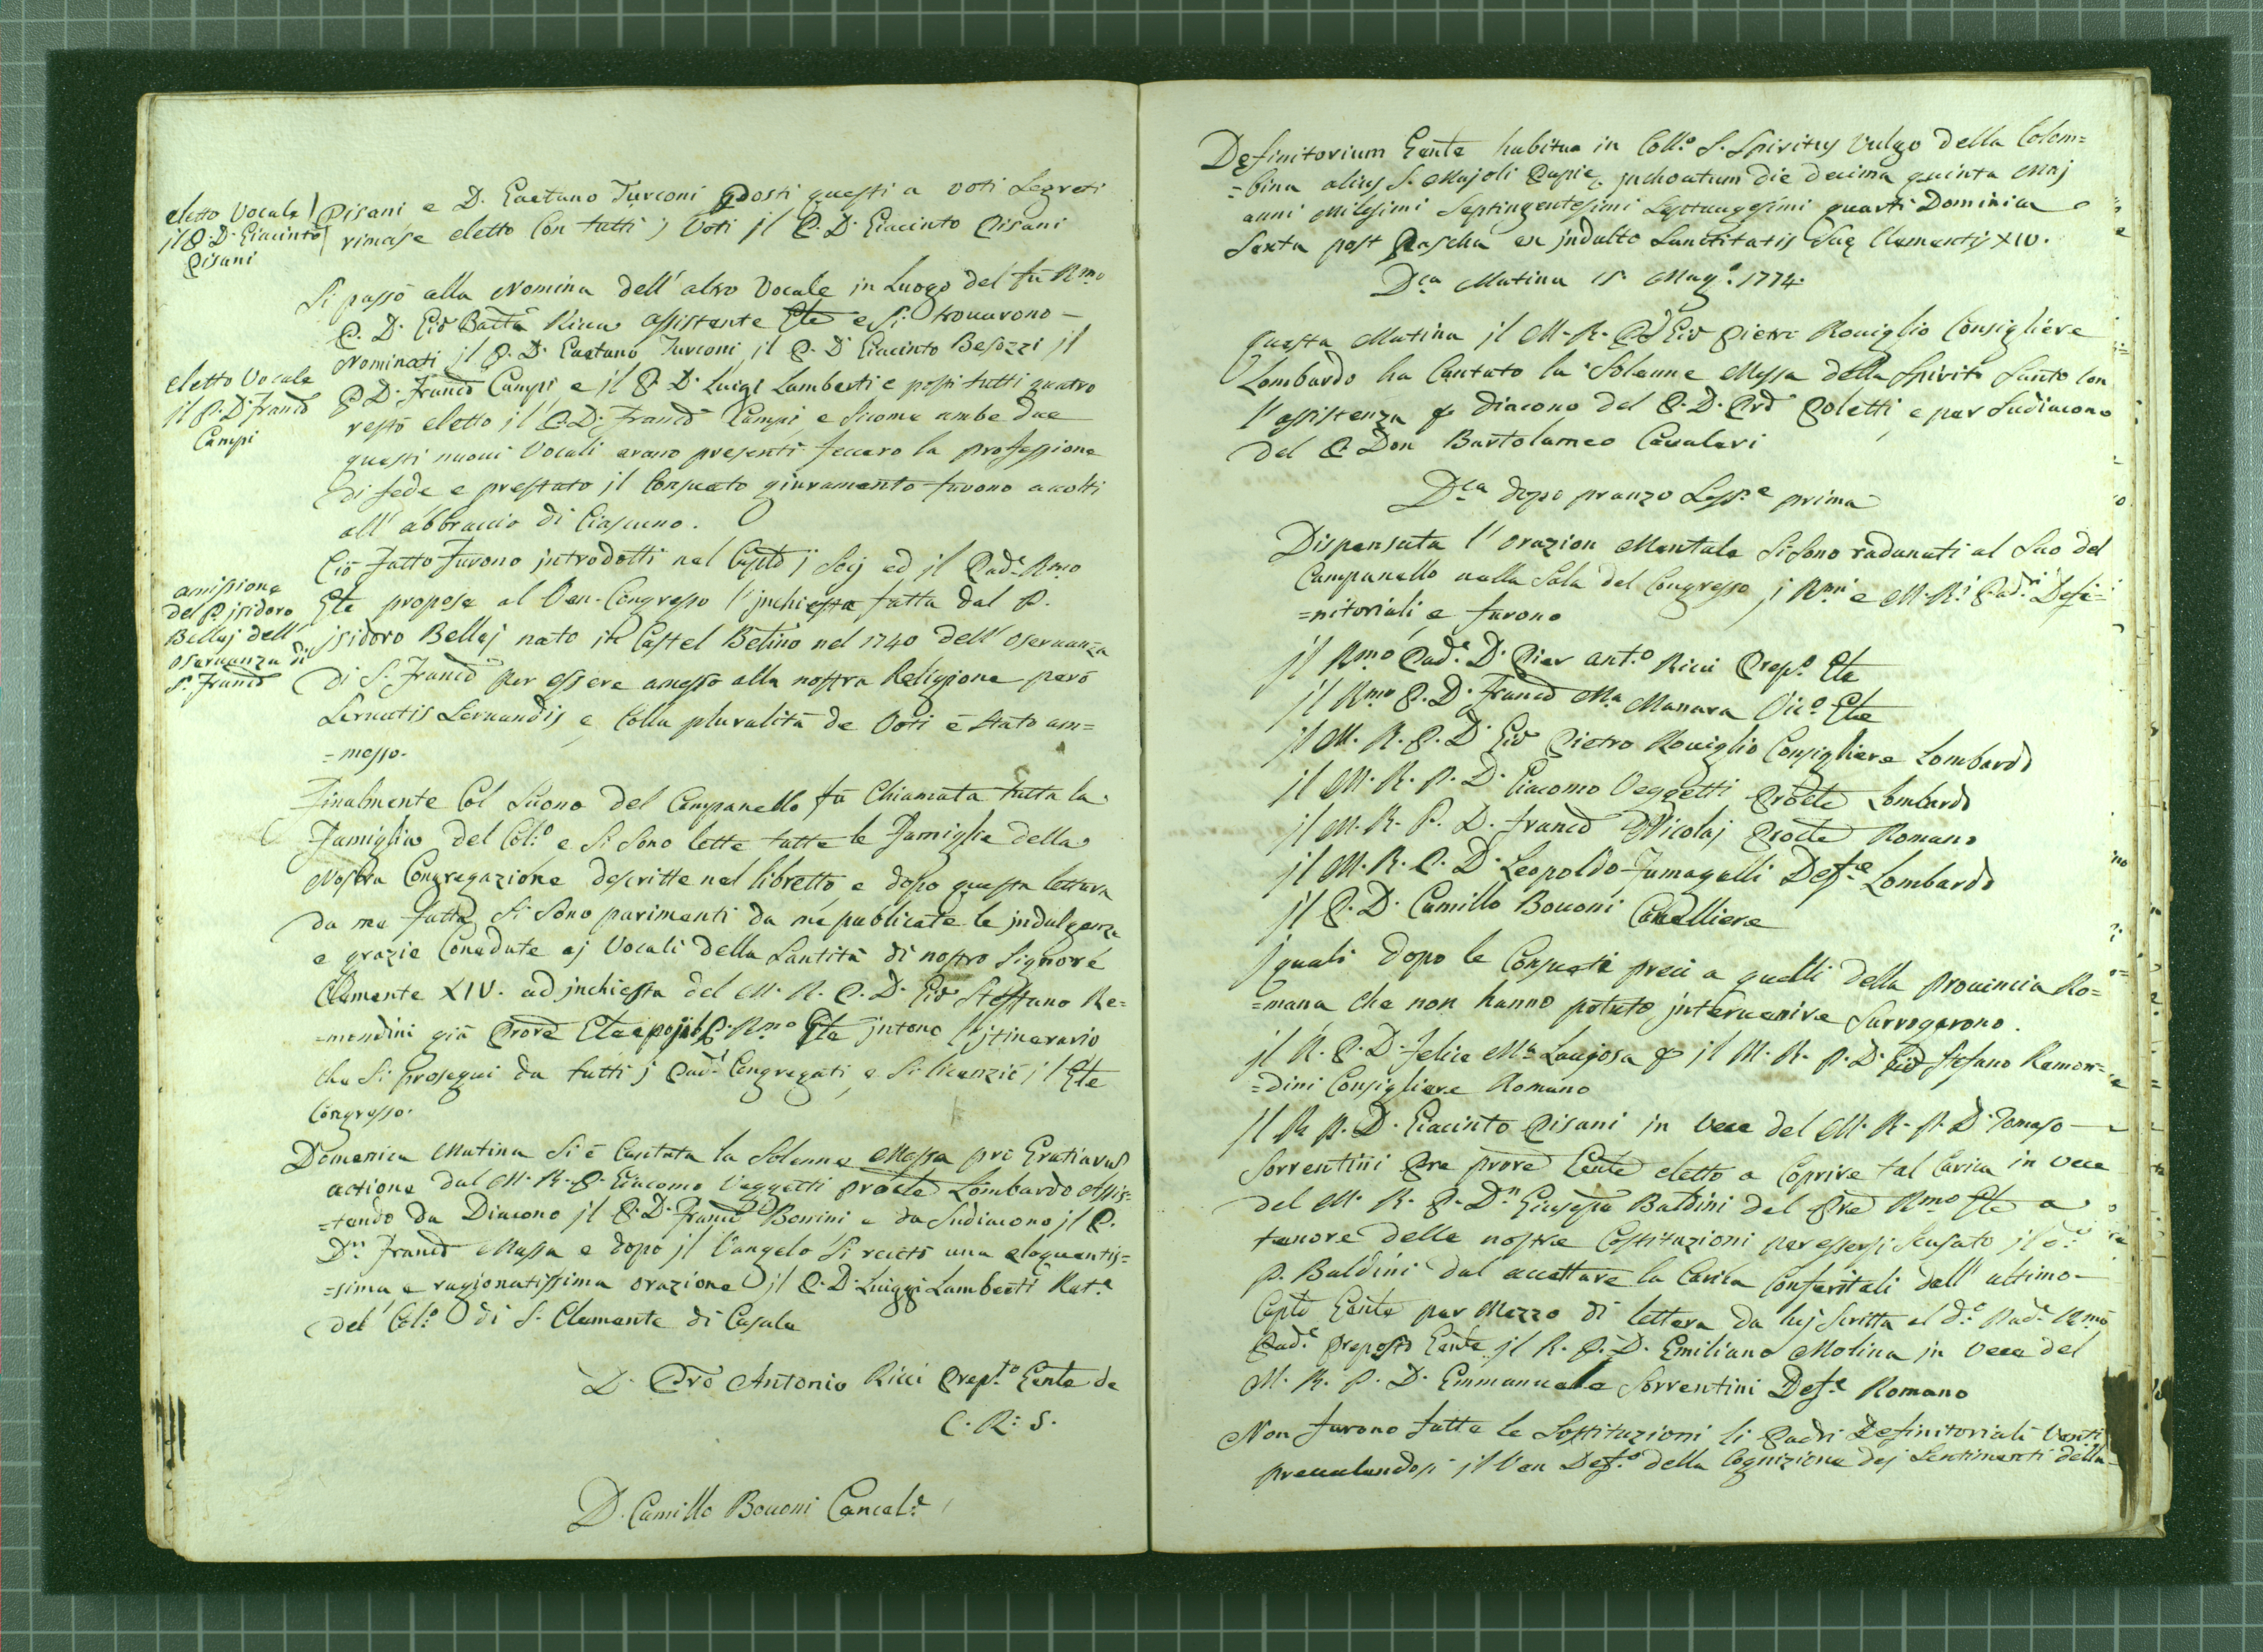 eletto Vocale
il P. D. Giacinto
Pisani
Pisani e D. Gaetano Turconi Posti questi a voti Segreti
rimase eletto Con tutti j Voti jl P. D. Giacinto Pisani
Si passò alla Nomina dell' altro Vocale in Luogo del fù Rmo
P. D. Gio Batta Ricca Assistente Gle e Si trovarono
Nominati jl P. D. Gaetano Turconi jl P. D. Giacinto Besozzi jl
eletto Vocale
il P. D. Franco
Campi
P D. Franco Campi, e jl P. D. Luigi Lamberti e posti tutti quatro
restò eletto jl P. D. Franco Campi, e Sicome ambe due
questi nuovi Vocali erano presenti feccero la professione
di fede e prestato jl Consueto giuramento furono accolti
all' abbraccio di Ciascuno.
Ciò Fatto Furono jntrodotti nel Capto j Socj ed jl Pade Rmo
amissione
del P. jsidoro
Bellaj dell'
Oservanza di
S. Franco
Gle propose al Ven. Congresso l' jnchiesta fatta dal P.
jsidoro Bellej nato in Castel Betino nel 1740 dell' Oservanza
di S. Franco Per essere amesso alla nostra Religione però
Servatis Servandis e Colla pluralità de Voti è stato am=
=messo.
Finalmente Col Suono del Campanello fù Chiamata tutta la
Famiglia del Col.o e Si Sono lette tutte le Famiglie della
Nostra Congregazione descritte nel libretto e dopo questa lettura
da me fatta Si Sono parimenti da me publicate le jndulgenze
e grazie Concedute aj Vocali della Santità di nostro Signore
Clemente XIV. ad jnchiesta del M. R. P. D. Gio Steffano Re=
=mondini già Prore Gle e poj il P. Rmo Gle jntonò l' jtinerario
che Si proseguì da tutti j Padi Congregati, e Si licenziò jl Gle
Congresso.
Domenica Matina Si è Cantata la Solenne Messa pro Gratiarum
actione dal M. R. P. Giacomo Veggetti Prole Lombardo Assis=
=tendo da Diacono jl P. D. Franco Bonini e da Sudiacono jl P.
Dn Franco Massa e dopo jl Vangelo Si recitò una eloquentis=
=sima, e ragionatissima orazione jl P. D. Luiggi Lamberti Ret.e
del Col.o di S. Clemente di Casale
D. Pro Antonio Ricci Prep.to Gente de
C. R. S.
D. Camillo Bovoni Cancel.e
Definitorium Gente habitua in Coll.o S. Spiritus Vulgo della Colom=
=bina alius S. Majoli Papie jnchoatum die decima quinta Maj
anni Milesimi Septingentesimi Septuagesimi quarti Dominica
Sexta post Pascha ex jndulto Sanctitatis Sue Clementis XIV.
Dca Matina 15. Mag.o 1774.
questa Matina jl M. R. P D Gio Pietro Roviglio Consigliere
Lombardo ha Cantato la Solenne Messa della Spirito Santo Con
l' assistenza p diacono del P. D. Pro Poletti, e per Sudiacono
del P. Don Bartolameo Cavaleri
Dca dopo pranzo Sess.e prima
Dispensata l' orazion Mentale Si Sono radunati al Suo del
Campanello nella Sala del Congresso j Rmi e M. R.i Padri Defi=
=nitoriali e furono
jl Rmo Pade D. Pier Ant.o Ricci Prep.o Gle
jl Rmo P. D. Franco Ma Manara Vic.o Gle
jl M. R. P. D Gio Pietro Roviglio Consigliere Lombardo
jl M. R. P. D. Giacomo Veggetti Prole Lombardo
jl M. R. P. D. Franco D Nicolaj Prole Romano
jl M. R. P. D. Leopoldo Fumagalli Def.e Lombardo
jl P. D. Camillo Bovoni Cancelliere
J quali dopo le Consuete preci a quelli della provincia Ro=
=mana che non hanno potuto jntervenire Surrogarono.
jl R. P. D. Felice Ma p jl M. R. P. D. Gio Stefano Remon=
=dini Consigliere Romano
Jl R. P. D. Giacinto Pisani in vece del M. R. P. D. Tomaso
Sorrentini Pre prore Gente eletto a Coprire tal Carica in vece
del M. R. P. Dn Giuseppe Baldini dal Pre Rmo Gle a
tenore delle nostre Costituzioni per essersi Scusato jl d.o
P. Baldini dal accettare la Carica Conferitali dall' ultimo
Capto Gente per Mezzo di lettera da luj Scritta al d.o Pad.e Rmo
Pad.e Preposto Gente jl R. P. D. Emiliano Molina in Vece del
M. R. P. D. Emmanuele Sorrentini Def.e Romano
Non furono fatte le Sostituzioni li Padri Definitoriali
prevalendosi jl Ven Def.o della Cognizione dej Sentimenti della